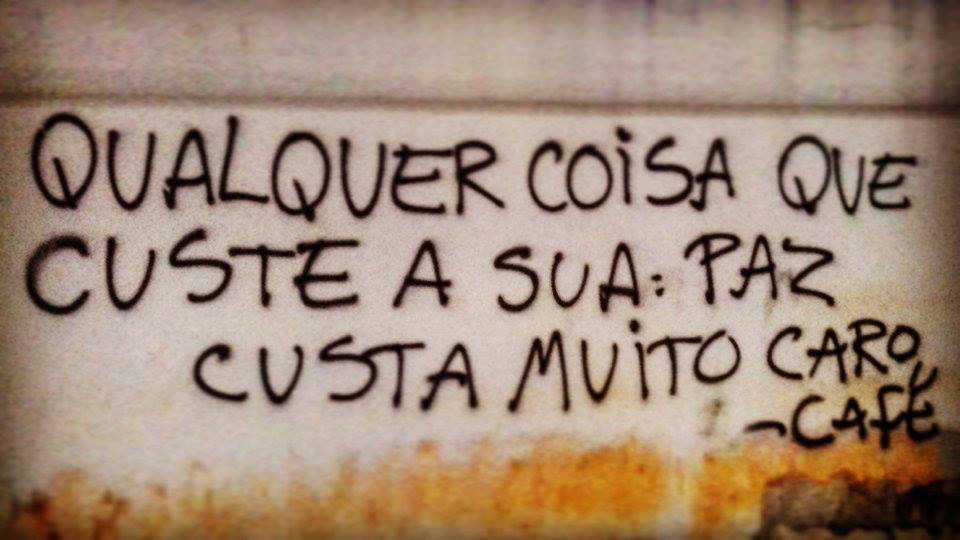 QUALQUER COISA QUE
CUSTE A SUA: PAZ
CUSTA MUITO CARO
-CAFÉ